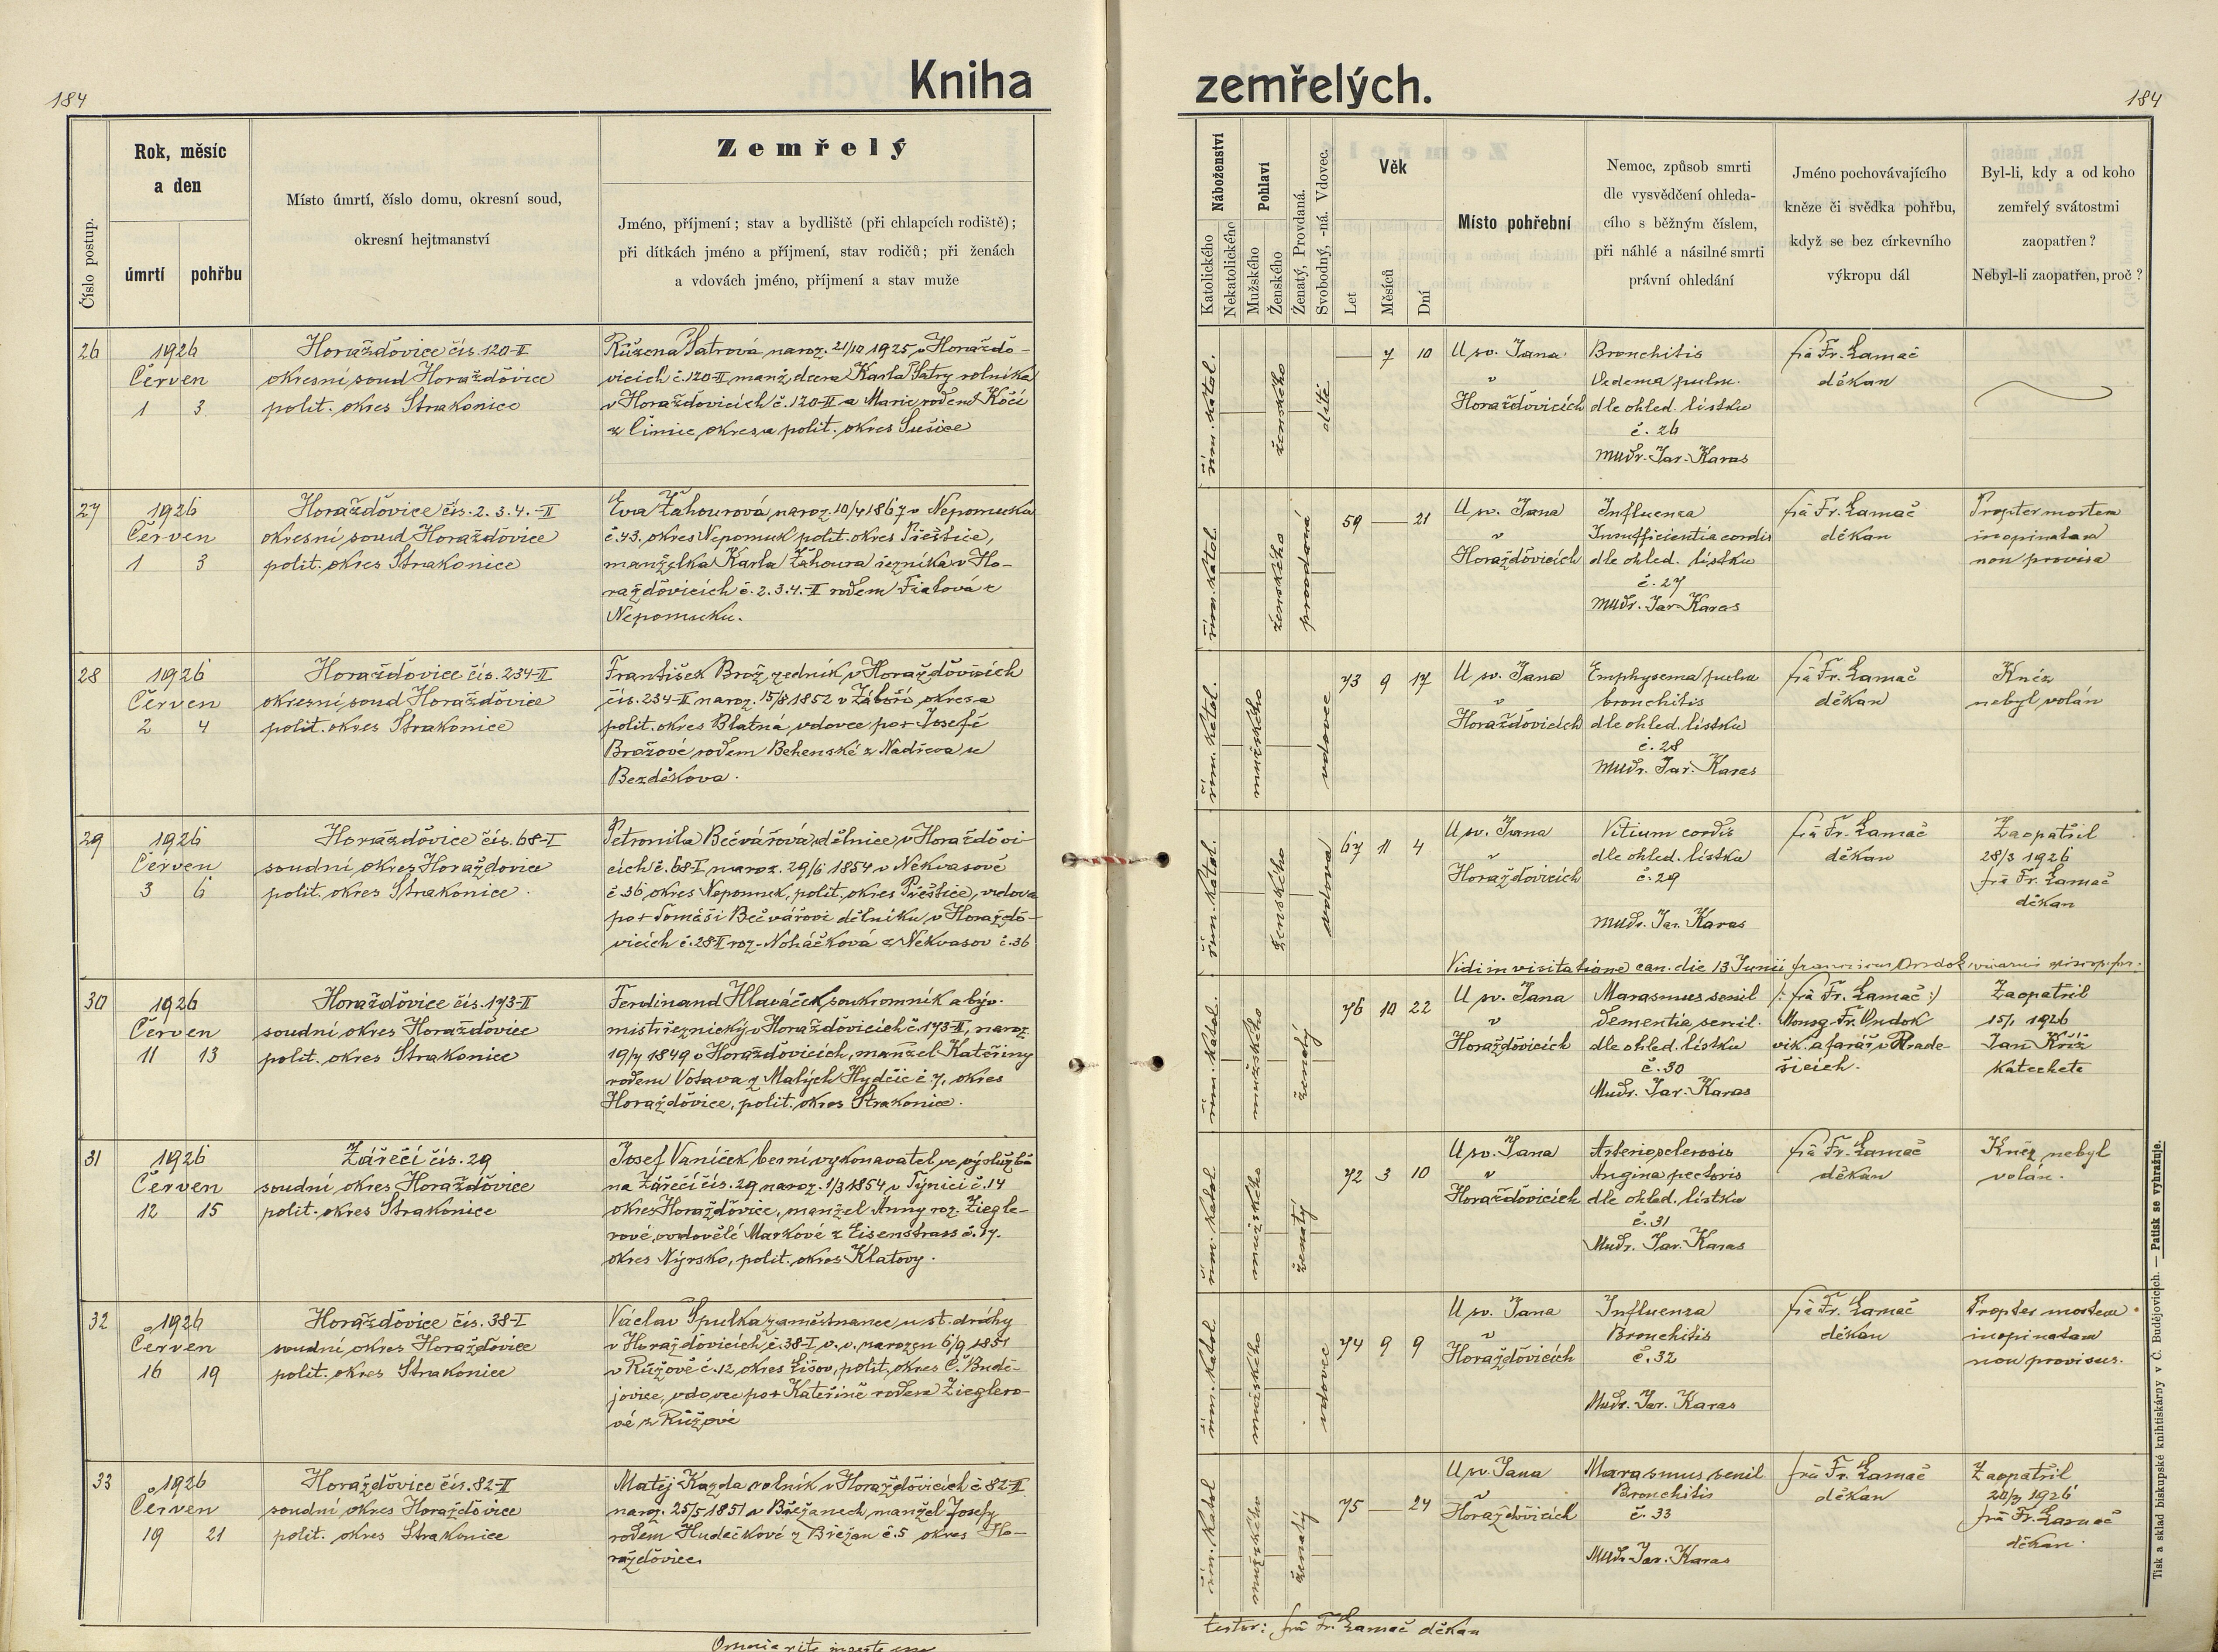 184
Kniha
zemřelých.
184
Číslo postup.
Rok, měsíc
a den
úmrtí
pohřbu
Místo úmrtí, číslo domu, okresní soud,
okresní hejtmanství
Zemřelý
Jméno, příjmení; stav a bydliště (při chlapcích rodiště);
při dítkách jméno a příjmení, stav rodičů; při ženách
a vdovách jméno, příjmení a stav muže
Náboženství
Katolického
Nekatolického
Pohlaví
Mužského
Ženského
Ženatý, Provdaná.
Svobodný, -ná. Vdovec.
Věk
Let
Měsíců
Dní
Místo pohřební
Nemoc, způsob smrti
dle vysvědčení ohleda-
cího s běžným číslem,
při náhlé a násilné smrti
právní ohledání
Jméno pochovávajícího
kněze či svědka pohřbu,
když se bez církevního
výkropu dál
Byl-li, kdy a od koho
zemřelý svátostmi
zaopatřen?
Nebyl-li zaopatřen, proč?
26
1926
Červen
1 3
Horažďovice čís. 120-II
okresní soud Horažďovice
polit. okres Strakonice
Růžena Šatrová naroz. 21/10 1925 v Horažďo-
vicích č. 120-II manž. dcera Karla Šatry rolníka
v Horažďovicích č. 120-II a Marie rozené Kočí
z Čimic, okres a polit. okres Sušice
řím. katol.
ženského
dítě
— 7 10
U sv. Jana
v
Horažďovicích
Bronchitis
Oedema pulm.
dle ohled. lístku
č. 26
MUDr. Jar. Karas
frà Fr. Lamač
děkan
27
1926
Červen
1 3
Horažďovice čís. 2. 3. 4.-II
okresní soud Horažďovice
polit. okres Strakonice
Eva Žahourová, naroz. 10/4 1867 v Nepomuku
č. 43, okres Nepomuk polit. okres Přeštice,
manželka Karla Žahoura řezníka v Ho-
ražďovicích č. 2. 3. 4.-II rodem Fialová z
Nepomuku.
řím. katol.
ženského
provdaná
59 — 21
U sv. Jana
v
Horažďovicích
Influenza
Insufficientia cordis
dle ohled. lístku
č. 27
MUDr. Jar. Karas
frà Fr. Lamač
děkan
Propter mortem
inopinatam
non provisa
28
1926
Červen
2 4
Horažďovice čís. 234-II
okresní soud Horažďovice
polit. okres Strakonice
František Brož, zedník v Horažďovicích
čís. 234-II naroz. 15/8 1852 v Záboří, okres a
polit. okres Blatná, vdovec po + Josefě
Brožové, rodem Behenské z Nadřeva u
Bezděkova.
řím. katol.
mužského
vdovec
73 9 17
U sv. Jana
v
Horažďovicích
Emphysema pulm
bronchitis
dle ohled. lístku
č. 28
MUDr. Jar. Karas
frà Fr. Lamač
děkan
Kněz
nebyl volán
29
1926
Červen
3 6
Horažďovice čís. 68-I
soudní okres Horažďovice
polit. okres Strakonice.
Petronila Bečvářová dělnice v Horažďovi
cích č. 68-I naroz. 29/6 1854 v Nekvasově
č. 36, okres Nepomuk, polit. okres Přeštice, vdova
po + Tomáši Bečvářovi dělníku v Horažďo-
vicích č. 28-I roz. Noháčková z Nekvasov č. 36
řím. katol.
ženského
vdova
67 11 4
U sv. Jana
v
Horažďovicích
Vitium cordis
dle ohled. lístku
č. 29
MUDr. Jar. Karas
frà Fr. Lamač
děkan
Zaopatřil
28/3 1926
frà Fr. Lamač
děkan
Vidi in visitatione can. die 13 Junii
30
1926
Červen
11 13
Horažďovice čís. 173-II
soudní okres Horažďovice
polit. okres Strakonice
Ferdinand Hlaváček, soukromník a býv.
mistr řeznický v Horažďovicích č. 173-II, naroz.
19/7 1849 v Horažďovicích, manžel Kateřiny
rodem Votava z Malých Hydčic č. 7, okres
Horažďovice, polit. okres Strakonice.
řím. katol.
mužského
ženatý
76 10 22
U sv. Jana
v
Horažďovicích
Marasmus senil
Dementia senil.
dle ohled. lístku
č. 30
MUDr. Jar. Karas
/: frà Fr. Lamač :/
Monsg. Fr. Ondok
vik. a farář v Hrade-
šicích.
Zaopatřil
15/1 1926
Jan Kříž
katecheta
31
1926
Červen
12 15
Zářečí čís. 29
soudní okres Horažďovice
polit. okres Strakonice
Josef Vaníček berní vykonavatel ve výslužbě
na Zářečí čís. 29 naroz. 1/3 1854 v Týnici č. 14
okres Horažďovice, manžel Anny roz. Ziegle-
rové, ovdovělé Markové z Eisenstrass č. 17.
okres Nýrsko, polit. okres Klatovy.
řím. katol
mužského
ženatý
72 3 10
U sv. Jana
v
Horažďovicích
Arteriosclerosis
Angina pectoris
dle ohled. lístku
č. 31
MUDr. Jar. Karas
frà Fr. Lamač
děkan
Kněz nebyl
volán.
32
1926
Červen
16 19
Horažďovice čís. 38-I
soudní okres Horažďovice
polit. okres Strakonice
Václav Špulka zaměstnanec u st. dráhy
v Horažďovicích č. 38-I v. v. narozen 6/9 1851
v Růžově č. 12, okres Lišov, polit. okres Č. Budě-
jovice, vdovec po + Kateřině rodem Zieglero-
vé z Růžové
řím. katol
mužského
vdovec
74 9 9
U sv. Jana
v
Horažďovicích
Influenza
Bronchitis
č. 32
MUDr. Jar. Karas
frà Fr. Lamač
děkan
Propter mortem
inopinatam
non provisus.
33
1926
Červen
19 21
Horažďovice čís. 82-II
soudní okres Horažďovice
polit. okres Strakonice
Matěj Kazda rolník v Horažďovicích č 82-II
naroz. 25/5 1851 v Břežanech, manžel Josefy
rodem Hudečkové z Břežan č. 5 okres Ho-
ražďovice.
řím. katol
mužského
ženatý
75 — 24
U sv. Jana
v
Horažďovicích
Marasmus senil
Bronchitis
č. 33
MUDr. Jar. Karas
frà Fr. Lamač
děkan
Zaopatřil
20/3 1926
frà Fr. Lamač
děkan.
testor: frà Fr. Lamač děkan
Tisk a sklad biskupské knihtiskárny v Č. Budějovicích. — Patisk se vyhražuje.